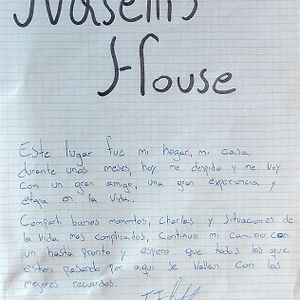 House
Este lugar fue mi hogar, mi casa
durante unos meses, hoy me despido y me voy
con un gran amigo, una gran experiencia y
etapa en la vida.
Compartí buenos momentos, charlas y situaciones de
la vida mas complicadas, Continuo mi camino con
un hasta pronto y espero que todos los que
esten pasando por aqui se vallan con los
mejores recuerdos.